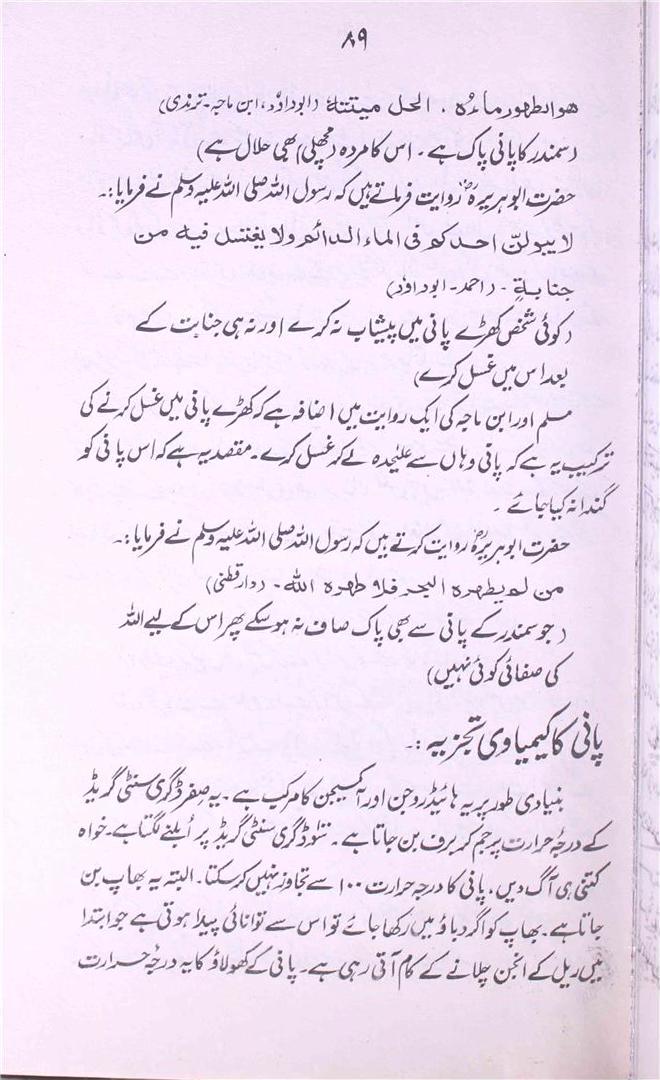 ۸۹
ھوالطھور ماءُہ ۔ الحل میتتہٗ (ابوداؤد، ابن ماجہ۔ ترمذی)
(سمندر کا پانی پاک ہے ۔ اس کا مردہ (مچھلی) بھی حلال ہے)
حضرت ابو ہریرہؓ روایت فرماتے ہیں کہ رسول اللہ صلی اللہ علیہ وسلم نے فرمایا:۔
لا یبولن احدکم فی الماء الدائم ولا یغتسل فیہ من
جنابۃٍ ۔ (احمد۔ ابوداؤد)
(کوئی شخص کھڑے پانی میں پیشاب نہ کرے اور نہ ہی جنابت کے
بعد اس میں غسل کرے)
مسلم اور ابن ماجہ کی ایک روایت میں اضافہ ہے کہ کھڑے پانی میں غسل کرنے کی
ترکیب یہ ہے کہ پانی وہاں سے علیٰحدہ لے کر غسل کرے۔ مقصد یہ ہے کہ اس پانی کو
گندا نہ کیا جائے ۔
حضرت ابو ہریرہؓ روایت کرتے ہیں کہ رسول اللہ صلی اللہ علیہ وسلم نے فرمایا:۔
من لم یطھرہ البحر فلا طھرہ اللہ ۔ (دارقطنی)
(جو سمندر کے پانی سے بھی پاک صاف نہ ہو سکے پھر اس کے لیے اللہ
کی صفائی کوئی نہیں)
پانی کا کیمیاوی تجزیہ :۔
بنیادی طور پر یہ ہائیڈروجن اور آکسیجن کا مرکب ہے ۔ یہ صفر ڈگری سنٹی گریڈ
کے درجۂ حرارت پر جم کر برف بن جاتا ہے ۔ سَو ڈگری سنٹی گریڈ پر اُبلنے لگتا ہے۔ خواہ
کتنی ہی آگ دیں، پانی کا درجہ حرارت ۱۰۰ سے تجاوز نہیں کر سکتا۔ البتہ یہ بھاپ بن
جاتا ہے۔ بھاپ کو اگر دباؤ میں رکھا جائے تو اس سے توانائی پیدا ہوتی ہے جو ابتدا
میں ریل کے انجن چلانے کے کام آتی رہی ہے۔ پانی کے کھولاؤ کا یہ درجۂ حرارت